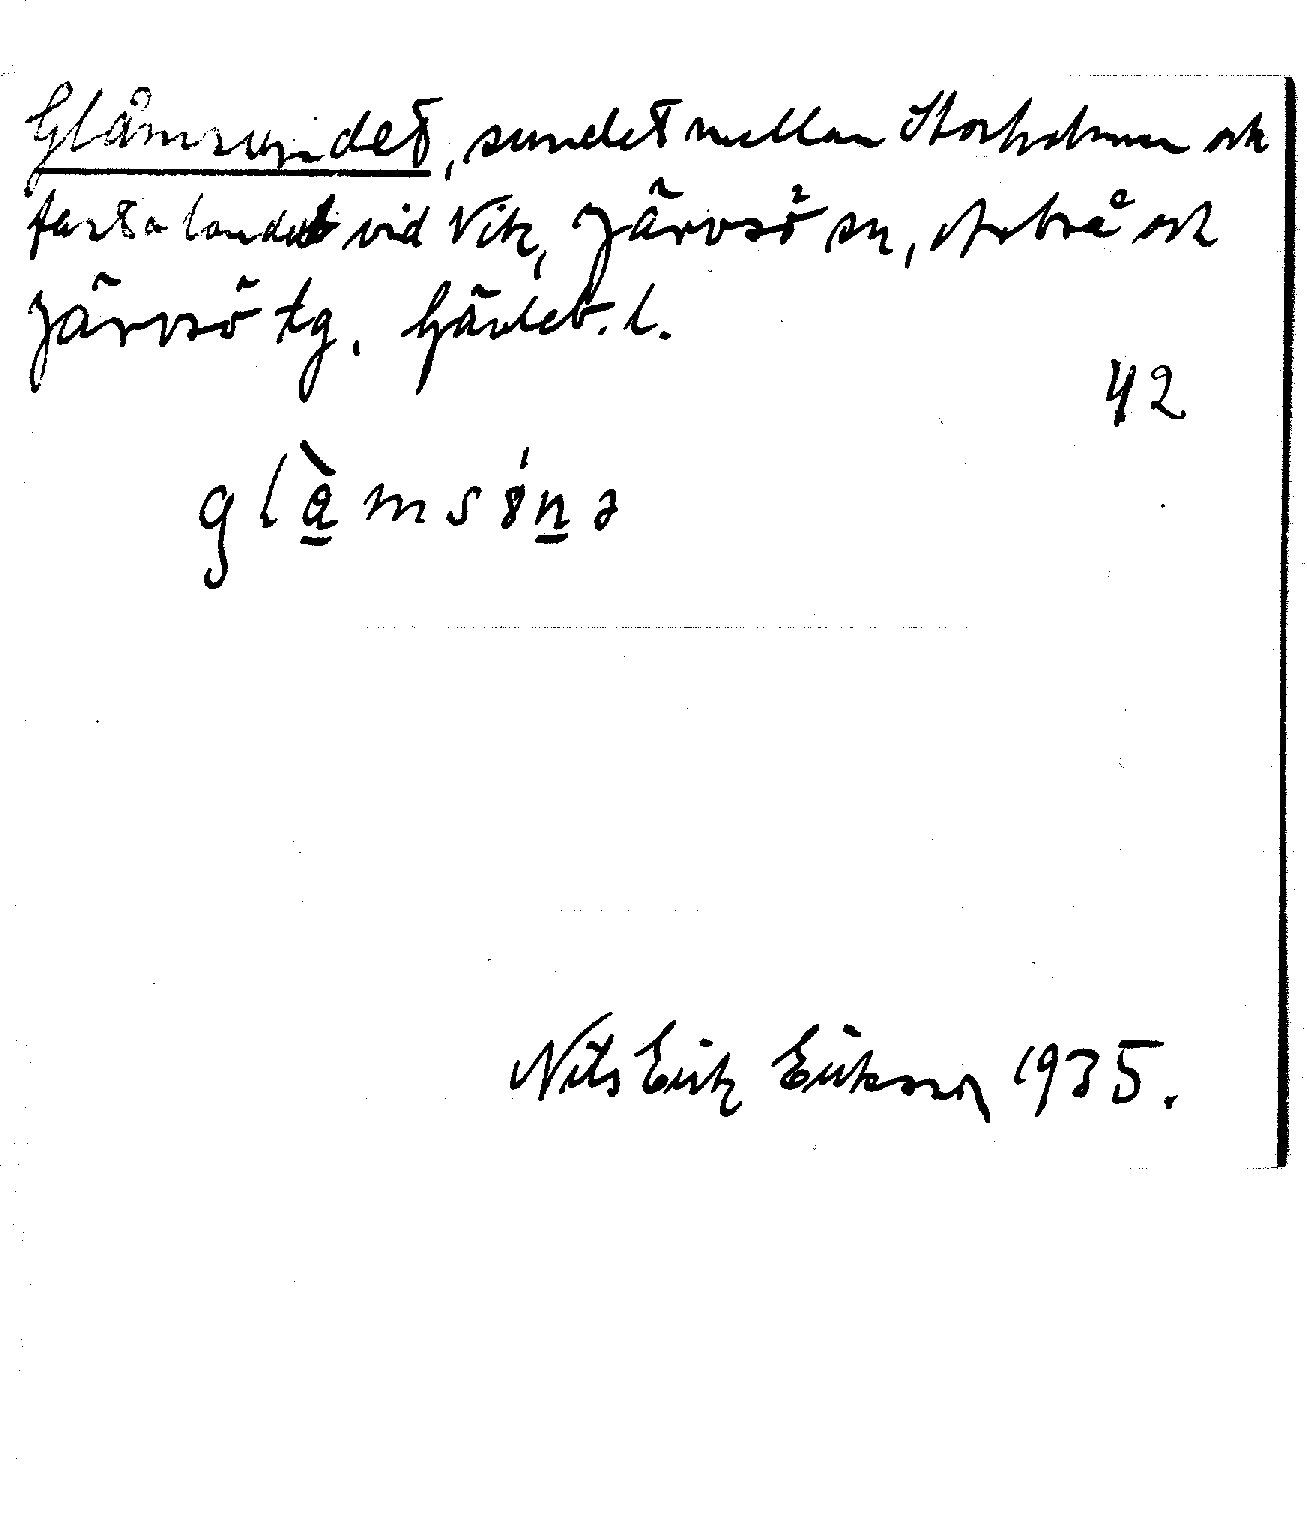 Glåmsundet, sundet mellan Storholmen och
fasta landet vid Vik, Järvsö sn, Arbrå och
Järvsö tg. Gävleb. l.
42
glåmsønə
Nils Erik Erikson 1935.